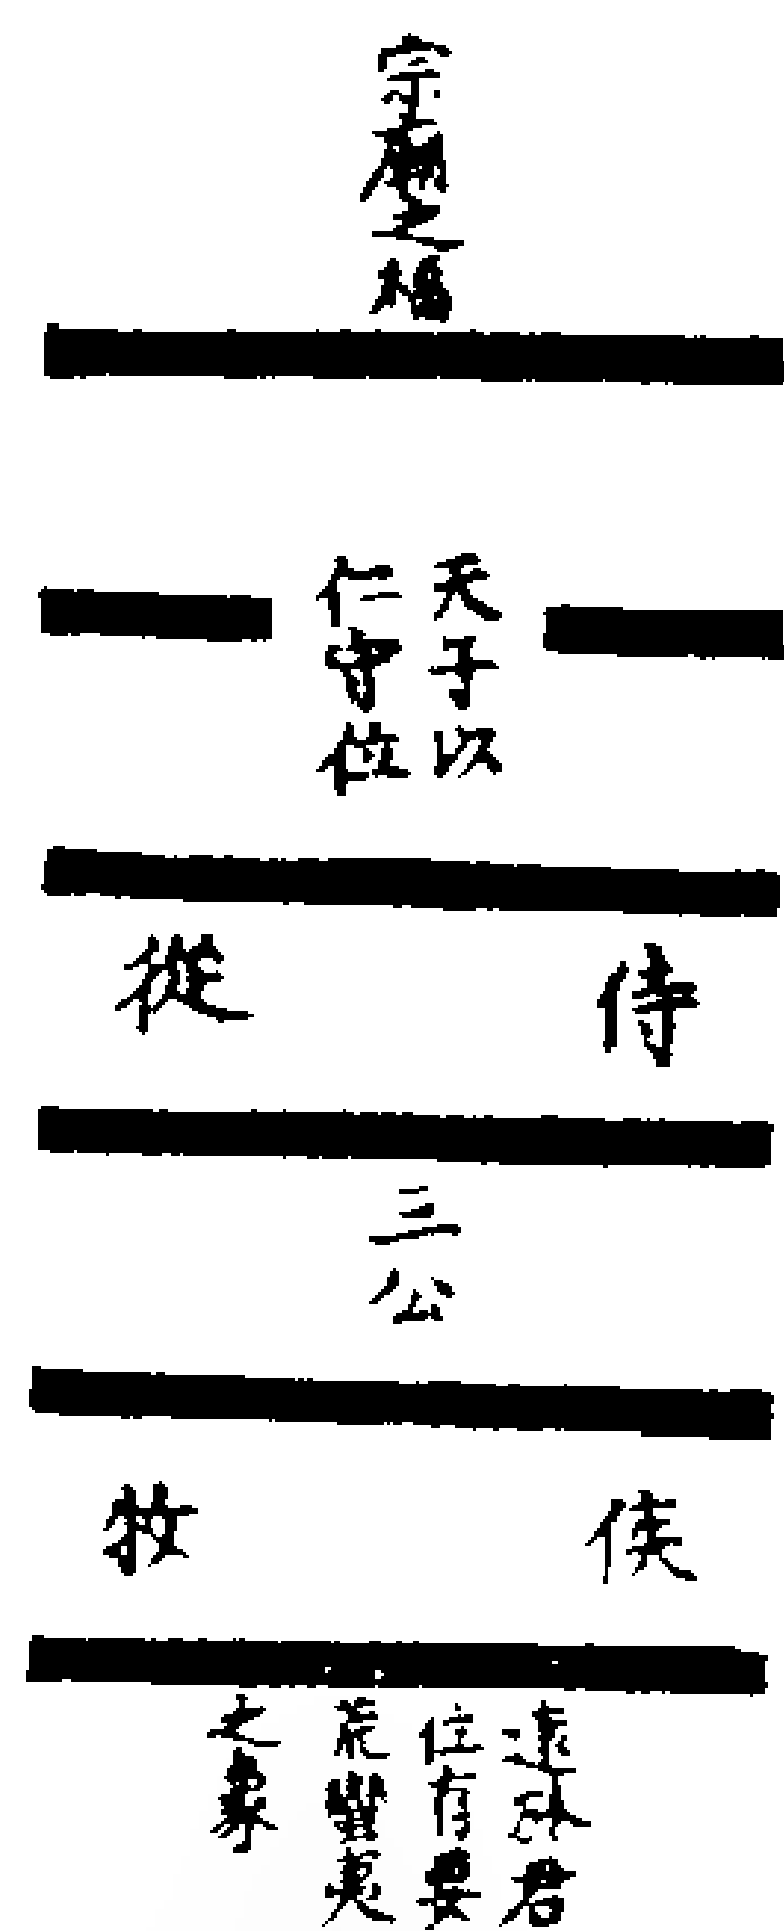 宗廟之福
天子以
仁守位
侍從
三公
侯牧
遠於君
位有要
荒蠻夷
之象